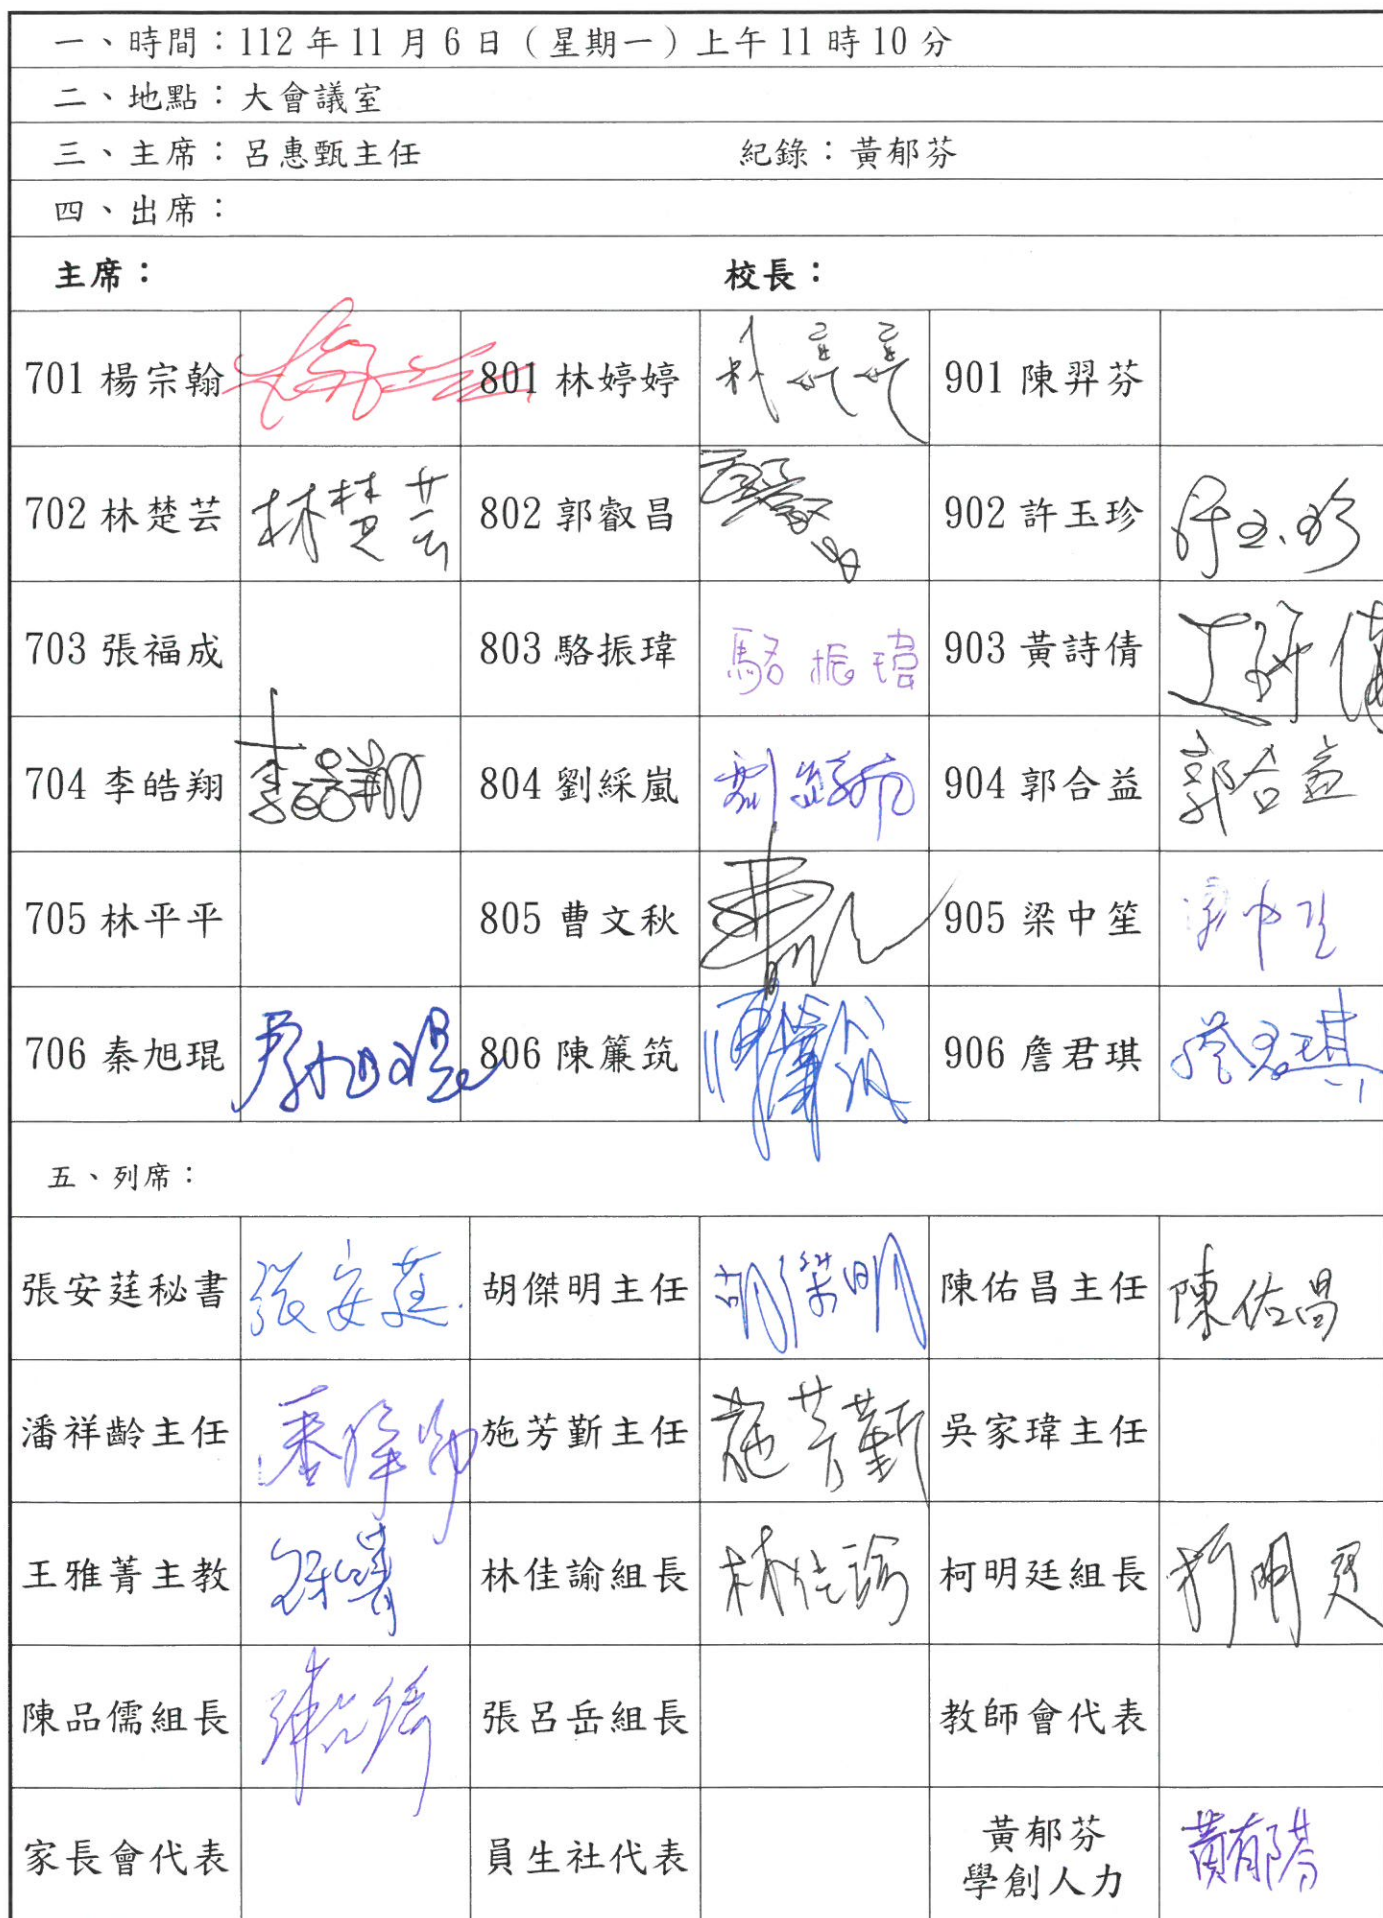 一、時間：112年11月6日（星期一）上午11時10分
二、地點：大會議室
三、主席：呂惠甄主任 紀錄：黃郁芬
四、出席：
主席： 校長：
701楊宗翰 801林婷婷 林婷婷 901陳羿芬
702林楚芸 林楚芸 802郭叡昌 902許玉珍 許玉珍
703張福成 803駱振瑋 駱振瑋 903黃詩倩
704李皓翔 李皓翔 804劉綵嵐 劉綵嵐 904郭合益 郭合益
705林平平 805曹文秋 905梁中笙 梁中笙
706秦旭琨 秦旭琨 806陳簾筑 陳簾筑 906詹君琪 詹君琪
五、列席：
張安莛秘書 張安莛 胡傑明主任 胡傑明 陳佑昌主任 陳佑昌
潘祥齡主任 潘祥齡 施芳勤主任 施芳勤 吳家瑋主任
王雅菁主教 林佳諭組長 林佳諭 柯明廷組長 柯明廷
陳品儒組長 陳品儒 張呂岳組長 教師會代表
家長會代表 員生社代表 黃郁芬 黃郁芬
學創人力